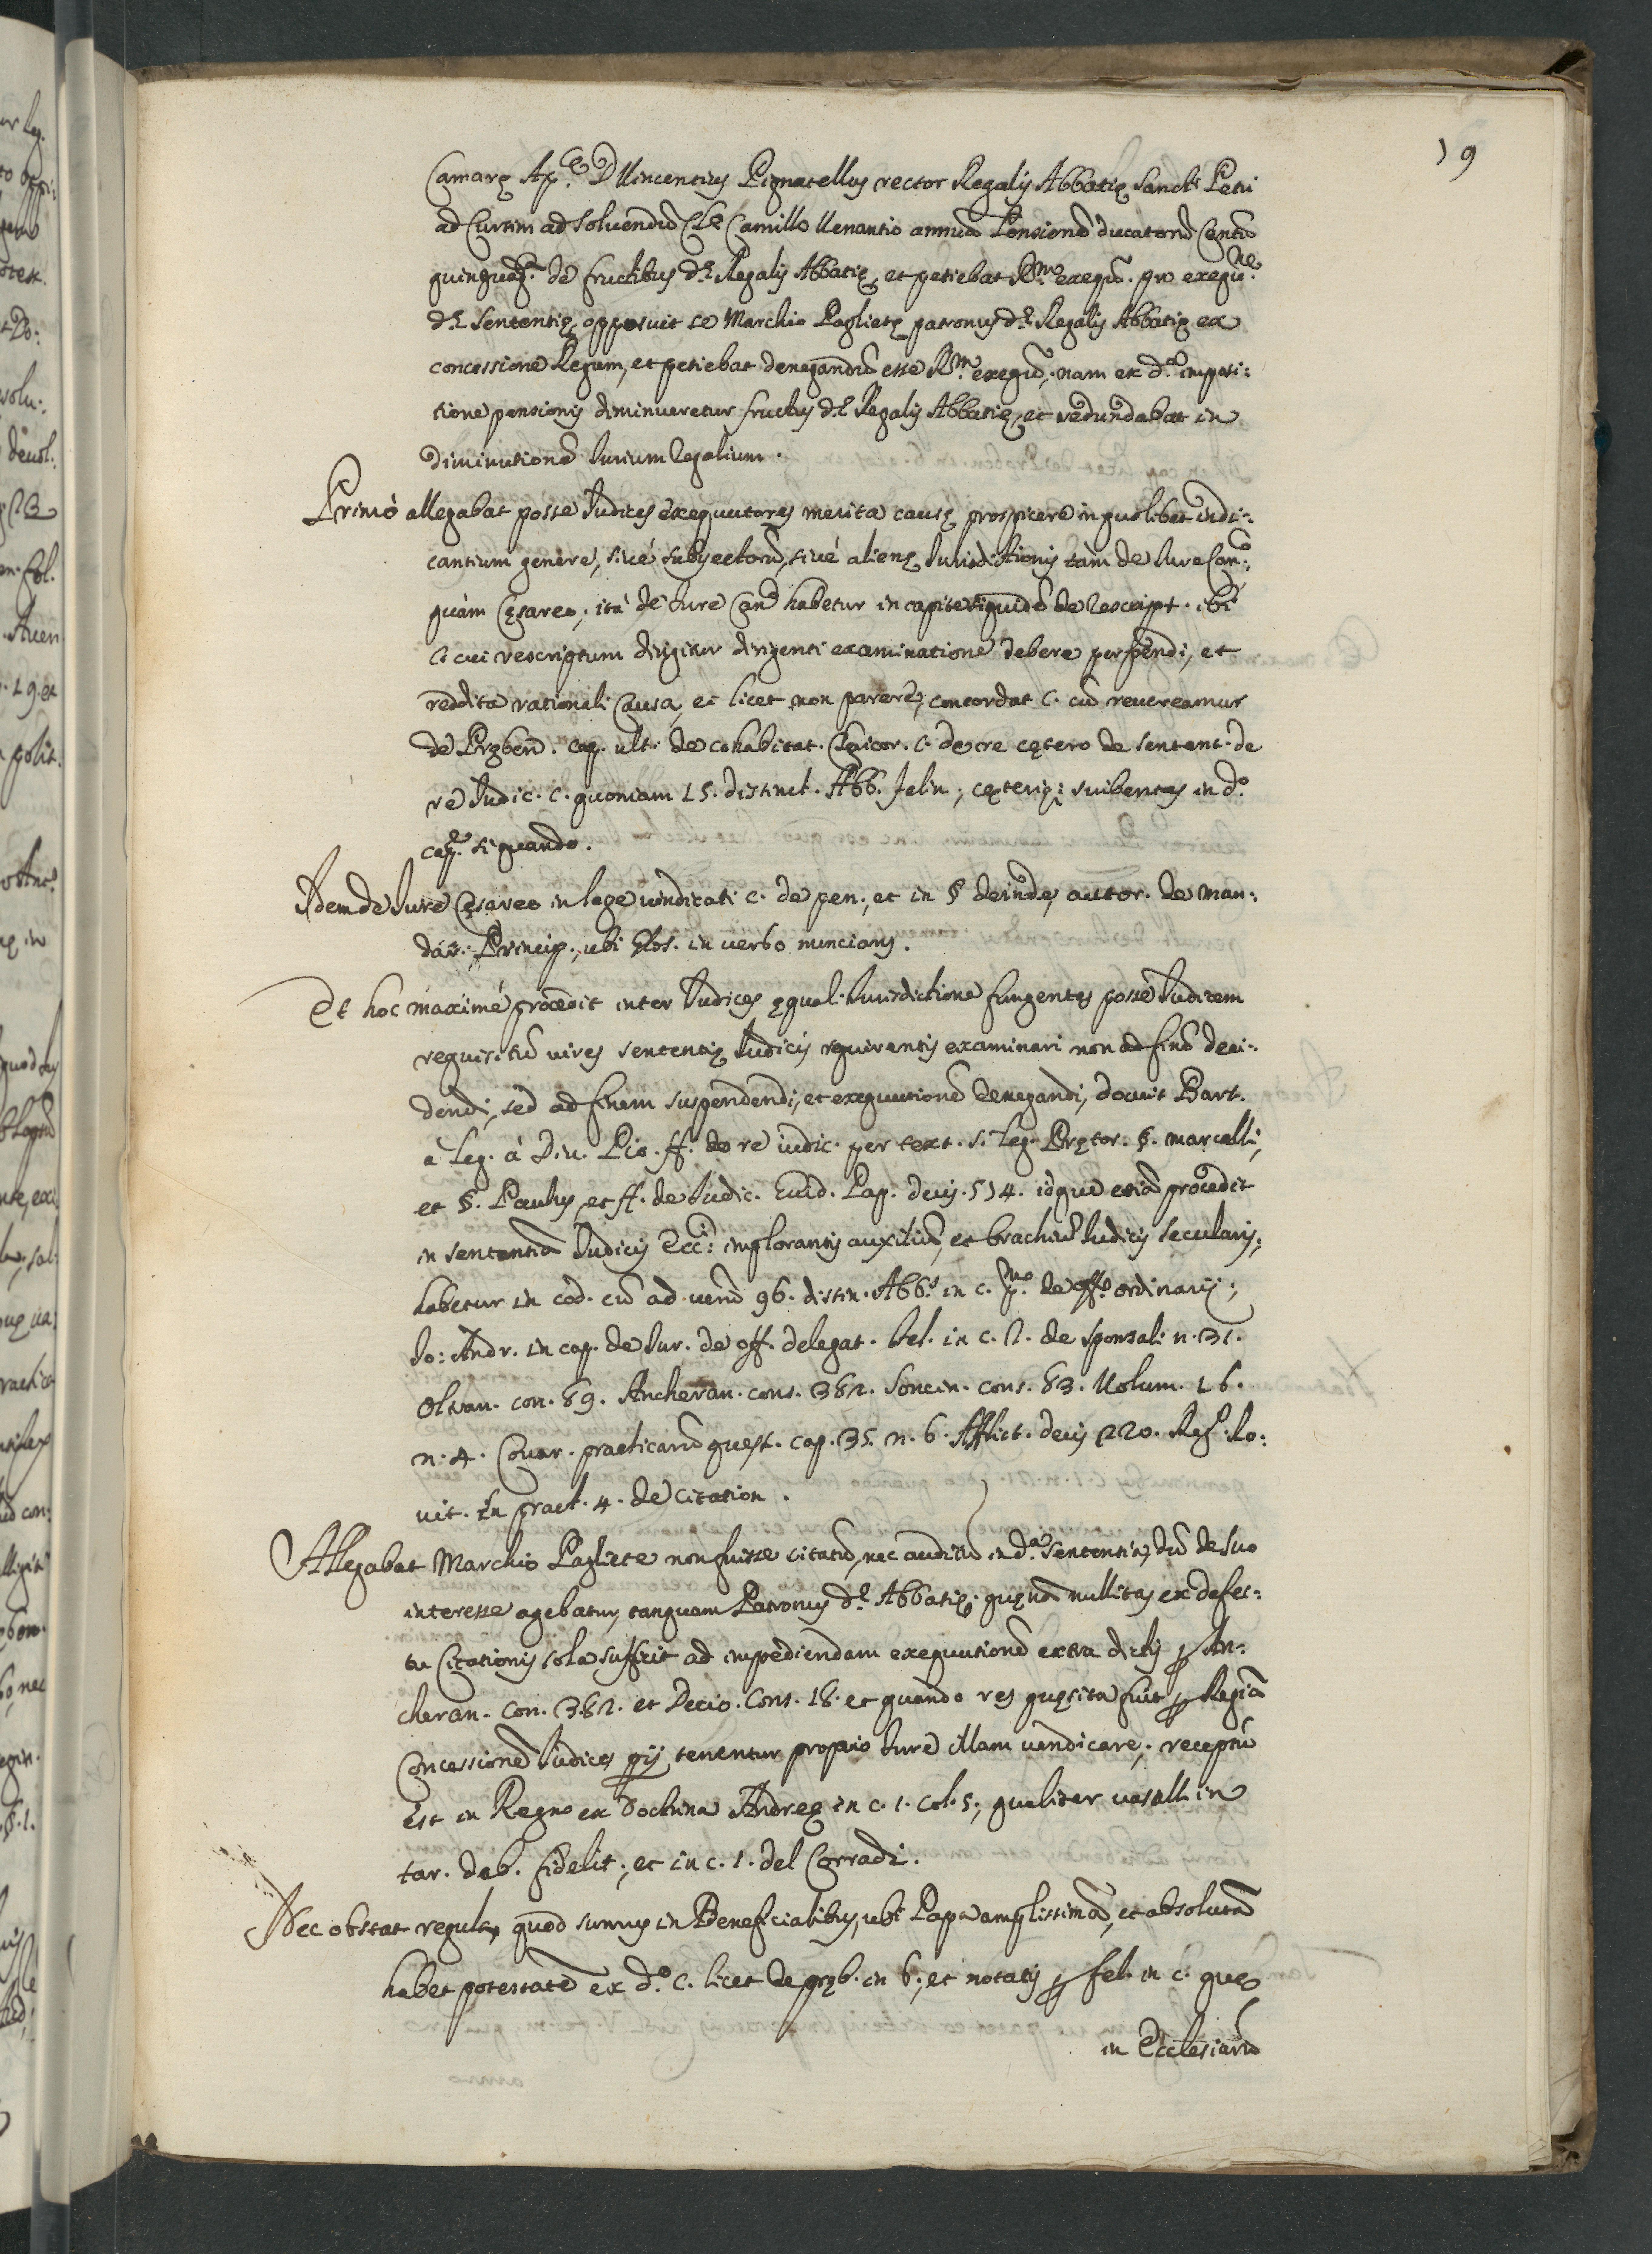 19
Camaræ Ap.cæ D. Vincentius Pignatellus rector Regalis Abbatiæ Sancti Petri
ad Curtim ad solvendũ Cl.º Camillo Venantio annuã Pensionẽ ducatorũ Centũ
quinquag.ª de fructibus d.æ Regalis Abbatiæ, et petebat R.m exequũ. pro exequ.ne
d.æ Sententiæ, opposuit se Marchio Paglietæ patronus d.æ Regalis Abbatiæ ex
concessione Regum, et petiebat denegandũ esse R.m exequũ, nam ex d.ª imposi:
tione pensionis diminueretur fructus d.æ Regalis Abbatiæ, et redundabat in
diminutionẽ Iurium Regalium.
Primò allegabat posse Iudices exequutores merita causæ prospicere in quolibet iudi:
cantium genere, sivè subyectorũ, sivè alienæ Iurisdictionis tàm de Iure Can.º:
quàm Cęsareo; ità de iure Can.º habetur in capite siquidẽ de Rescript. ibi
C. cui rescriptum dirigitur dirigenti examinationẽ debere perpendi, et
reddita rationali Causa, et licet non parere, concordat C. cũ revereamur
de Pręben. cap. ult. de cohabitat. Clericor. C. de cætero de sentent. de
re Iudic. C. quoniam 15. distinct. Abb. Felin, cęteriq; scribentes in d.º
cap.º si quando.
Idem de Iure Cęsareo in lege vindicati C. de pen., et in § deinde, autor. de man:
dat. Princip., ubi Glos. in verbo nuncians.
Et hoc maximè procedit inter Iudices ęquali Iurisdictione fungentes posse Iudicem
requisitũ vires sententiæ Iudicis requirentis examinari non ad finẽ deci:
dendi, sed ad finem suspendendi, et exequutionẽ denegandi, docuit Bart.
a Leg. à Div. Pio. ff. de re iudic. per text. s. Leg. Prętor. §. marcelli,
et §. Paulus, et ff. de Iudic. Guid. Pap. decis. 514. idque etiã procedit
in sententia Iudicis Ecc.ci implorantis auxiliũ, et brachiũ Iudicis secularis;
habetur in cod. cũ ad verũ 96. distin. Abb.s in c. p.mo de off.º ordinarij;
Io: Andr. in cap. de Iur. de off. delegat. Fel. in c. 2. de sponsali. n. 31.
Olvan. con. 69. Ancheran. cons. 382. Soncin. cons. 83. Volum. 16.
n. 4. Covar. practicarũ quęst. cap. 35. n. 6. Afflict. decis 220. Reg. Ro:
vit. In pract. 4. de citation.
Allegabat Marchio Pagliete non fuisse citatũ, nec auditũ in d.ª sententia, dũ de suo
interesse agebatur, tanquam Patronus d.æ Abbatiæ. quęnã nullitas ex defec:
tu Citationis sola sufficit ad impediendam exequutionẽ extra dictis p. An:
cheran. con. 382. et Decio. Cons. 18. et quando res quęsita fuit p. Regiã
Concessionẽ Iudices pij tenentur proprio Iure illam vendicare; receptũ
est in Regno ex doctrina Andreæ in c. 1. col. 5., qualiter vasall. in
tar. deb. fidelit., et in c. 1. del Corradi.
Nec obstat regula, quod sumus in Beneficialibus, ubi Papa amplissimã, et absolutã
habet potestatẽ ex d.º c. licet de pręb. in 6., et notatis p. Fel. in c. quæ
in Ecclesiarũ